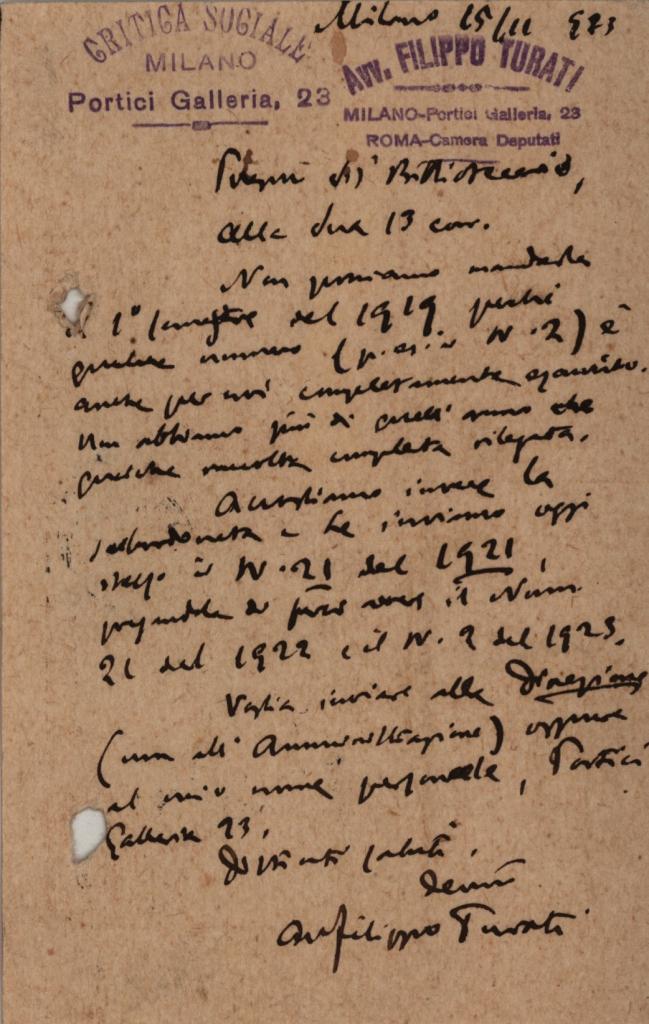 CRITICA SOCIALE
MILANO
Portici Galleria, 23
Milano 15/11 923
Avv. FILIPPO TURATI
MILANO-Portici Galleria, 23
ROMA-Camera Deputati
Bibliotecario,
alla sua 13 corr.
Non possiamo mandarle
il 1º semestre del 1919 perché
qualche numero (p. es. il N. 2) è
anche per noi completamente esaurito.
Non abbiamo più di quell'anno che
qualche raccolta completa rilegata.
Accettiamo invece la
e Le inviamo oggi
stesso il N. 21 del 1921,
pregandola di farci avere il Num.
21 del 1922 e il N. 2 del 1923.
Voglia inviare alla Direzione
(non all'Amministrazione) oppure
al mio nome personale, Portici
Galleria 23.
Distinti saluti.
Avv Filippo Turati